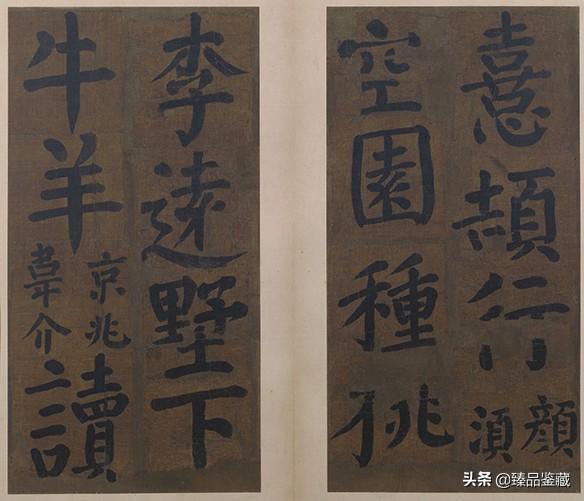 憙頡行顏湏
空園種桃
李遠墅下
牛羊京兆韋介讀
头条 @臻品鉴藏